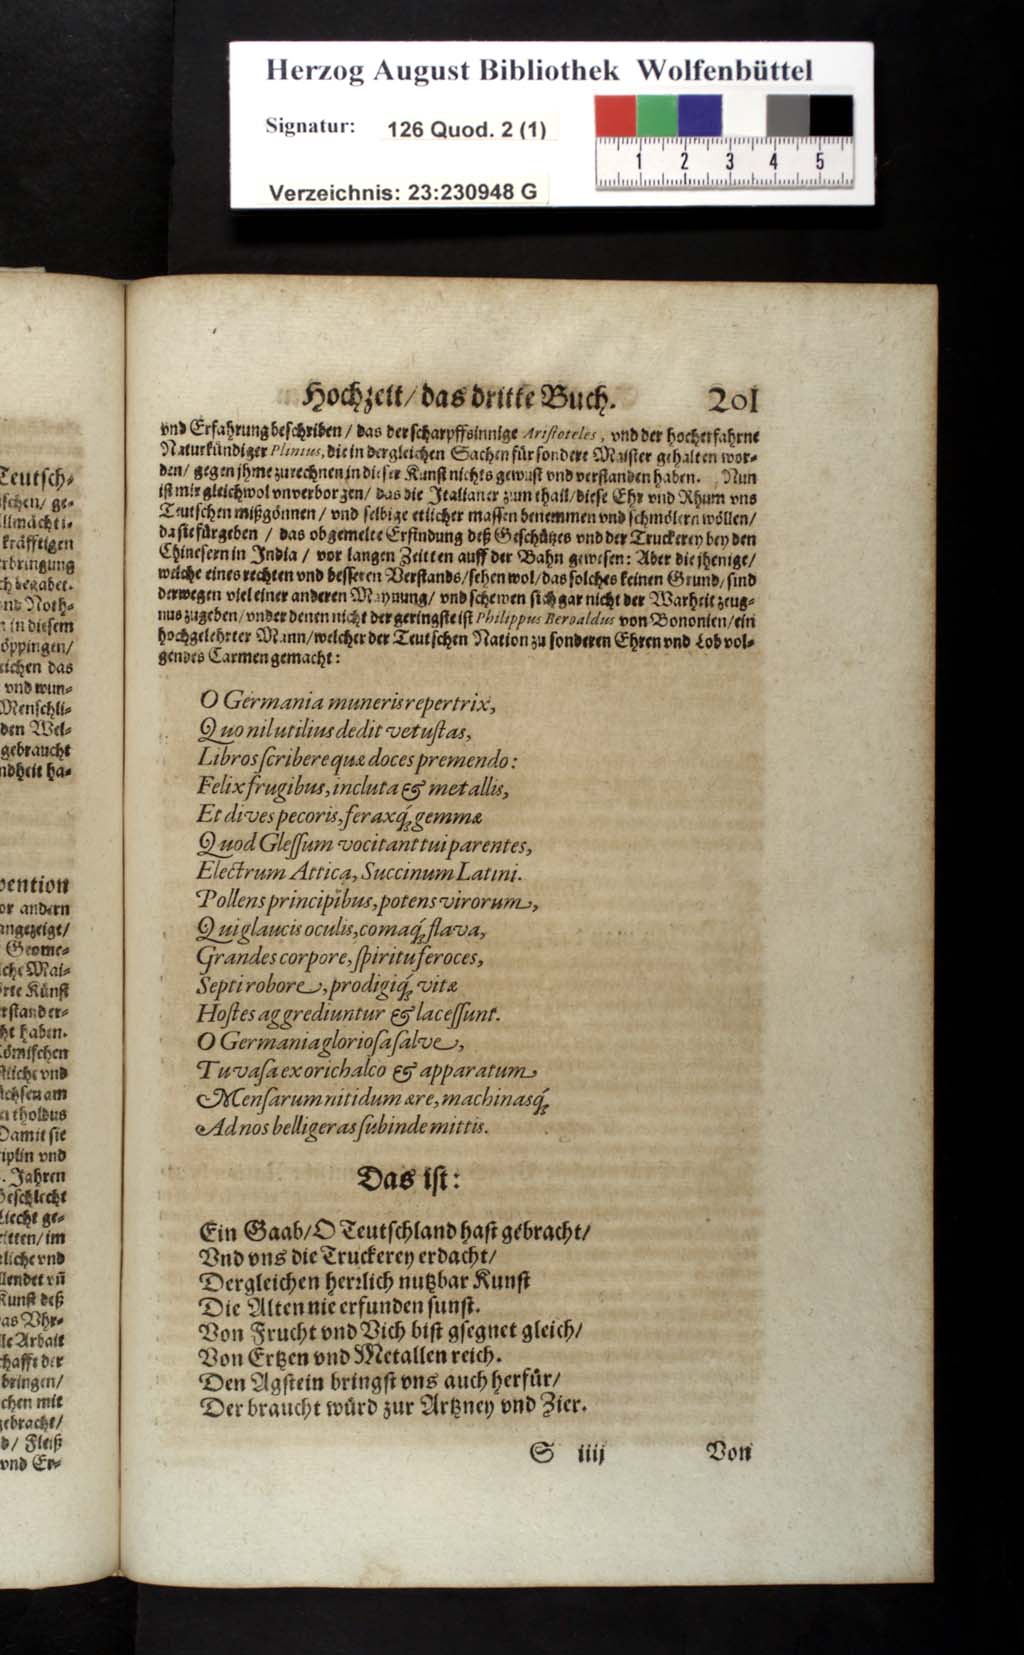 Herzog August Bibliothek Wolfenbüttel
Signatur: 126 Quod. 2 (1)
1 2 3 4 5
Verzeichnis: 23:230948 G
Teutsch⸗
ischen/ ge⸗
llmächti⸗
kräfftigen
erbringung
ch begabet.
nd Noth⸗
n in diesem
öppingen/
eichen das
vnd wun⸗
Menschli⸗
den Wel⸗
gebraucht
ndheit ha⸗
vention
or andern
angezeigt/
Geome⸗
che Mai⸗
örte Künst
rstander⸗
cht haben.
ömischen
stliche vnd
ächsen am
ertholdus
Damit sie
iplin vnd
. Jahren
Geschlecht
Liecht ge⸗
ritten/ im
rliche vnd
llendet vñ
Kunst deß
as Vhr⸗
lle Arbait
chafft der
bringen/
chen mit
gebracht/
d/ Fleiß
vnd Er⸗
Hochzeit/ das dritte Buch. 201
vnd Erfahrung beschriben / das der scharpffsinnige Aristoteles, vnd der hocherfahrne
Naturkündiger Plinius, die in dergleichen Sachen für sondere Maister gehalten wor⸗
den/ gegen ihme zurechnen in diser Kunst nichts gewust vnd verstanden haben. Nun
ist mir gleichwol vnverborgen/ das die Italianer zum thail/ diese Ehr vnd Rhum vns
Teutschen mißgönnen / vnd selbige etlicher massen benemmen vnd schmölern wöllen/
da sie fürgeben / das obgemelte Erfindung deß Geschützes vnd der Truckerey bey den
Chinesern in India / vor langen Zeitten auff der Bahn gewesen: Aber die jhenige/
welche eines rechten vnd besseren Verstands/ sehen wol/ das solches keinen Grund/ sind
derwegen viel einer anderen Maynung/ vnd schewen sich gar nicht der Warheit zeug⸗
nus zugeben/ vnder denen nicht der geringste ist Philippus Beroaldus von Bononien/ ein
hochgelehrter Mann/ welcher der Teutschen Nation zu sonderen Ehren vnd Lob vol⸗
gendes Carmen gemacht:
O Germania muneris repertrix,
Quo nil utilius dedit vetustas,
Libros scribere quæ doces premendo:
Felix frugibus, incluta & metallis,
Et dives pecoris, feraxq́; gemmæ
Quod Glessum vocitant tui parentes,
Electrum Attica, Succinum Latini.
Pollens principibus, potens virorum,
Qui glaucis oculis, comaq́; flava,
Grandes corpore, spiritu feroces,
Septi robore, prodigiq́; vitæ
Hostes aggrediuntur & lacessunt.
O Germania gloriosa salve,
Tu vasa ex orichalco & apparatum
Mensarum nitidum ære, machinasq́;
Ad nos belligeras subinde mittis.
Das ist:
Ein Gaab/ O Teutschland hast gebracht/
Vnd vns die Truckerey erdacht/
Dergleichen herrlich nutzbar Kunst
Die Alten nie erfunden sunst.
Von Frucht vnd Vich bist gsegnet gleich/
Von Ertzen vnd Metallen reich.
Den Agstein bringst vns auch herfür/
Der braucht würd zur Artzney vnd Zier.
S iiij Von